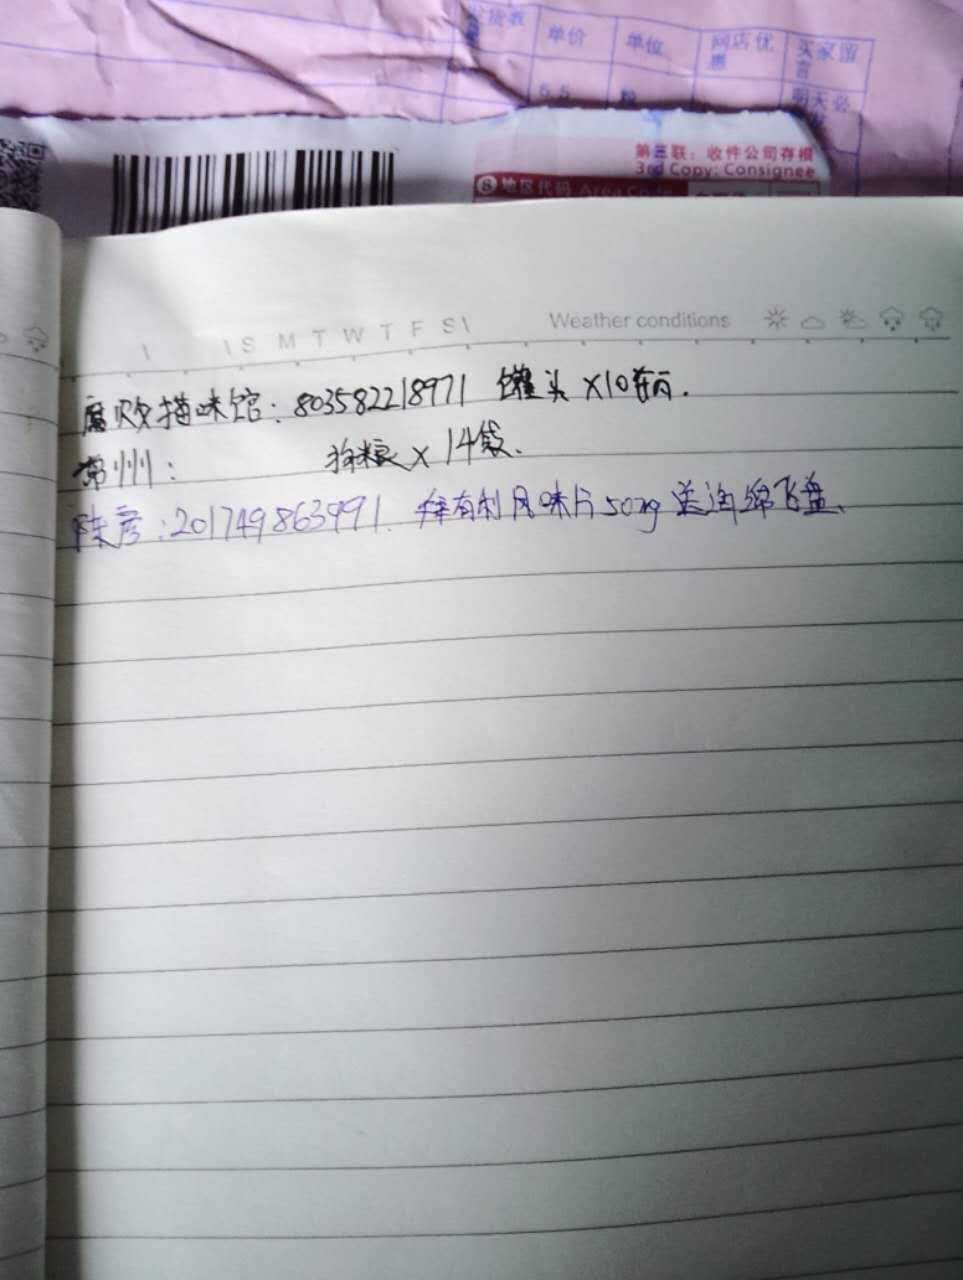 发货数 单价 单位 网店优惠 买家留言
6.5 明天必
第三联：收件公司存根
3rd Copy: Consignee
⑧ 地区代码 Area Code
S M T W T F S Weather conditions
腐败猫咪馆：803582218971 罐头×10瓶.
常州： 狗粮×14袋.
陈彦：201749863991. 有利风味片50g 送海绵飞盘.